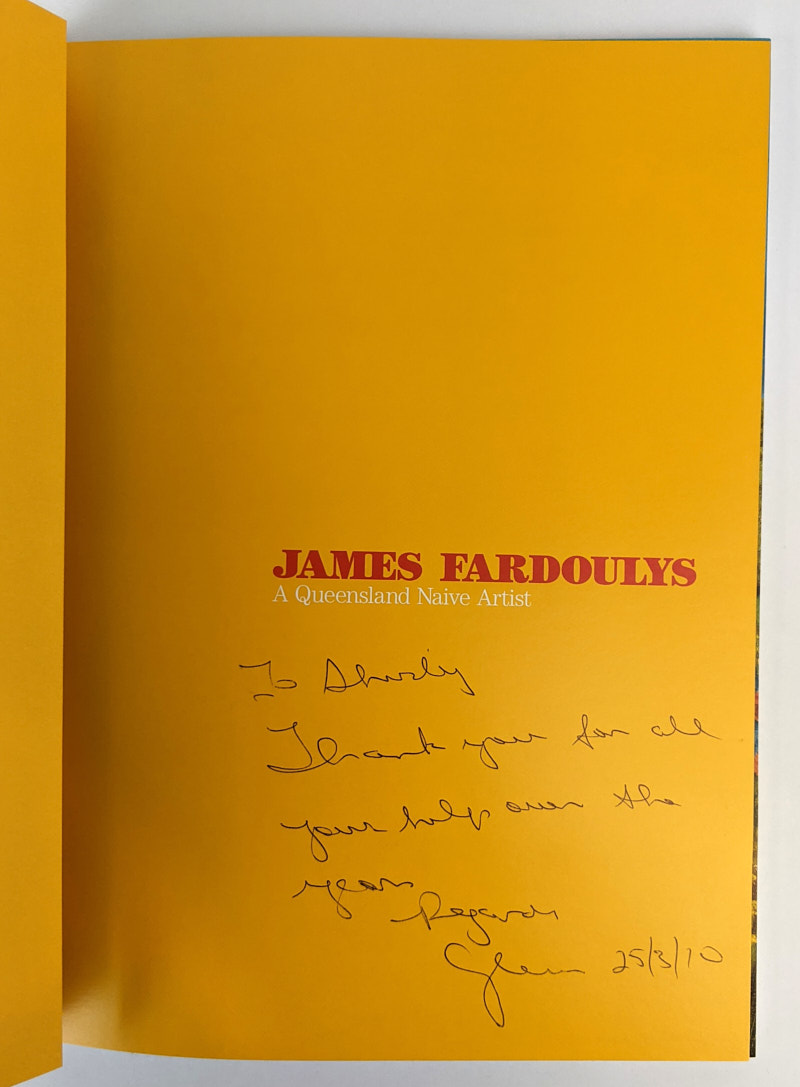 JAMES FARDOULYS
A Queensland Naive Artist
To Shirley
Thank you for all
your help over the
years
Regards
Glenn 25/3/10